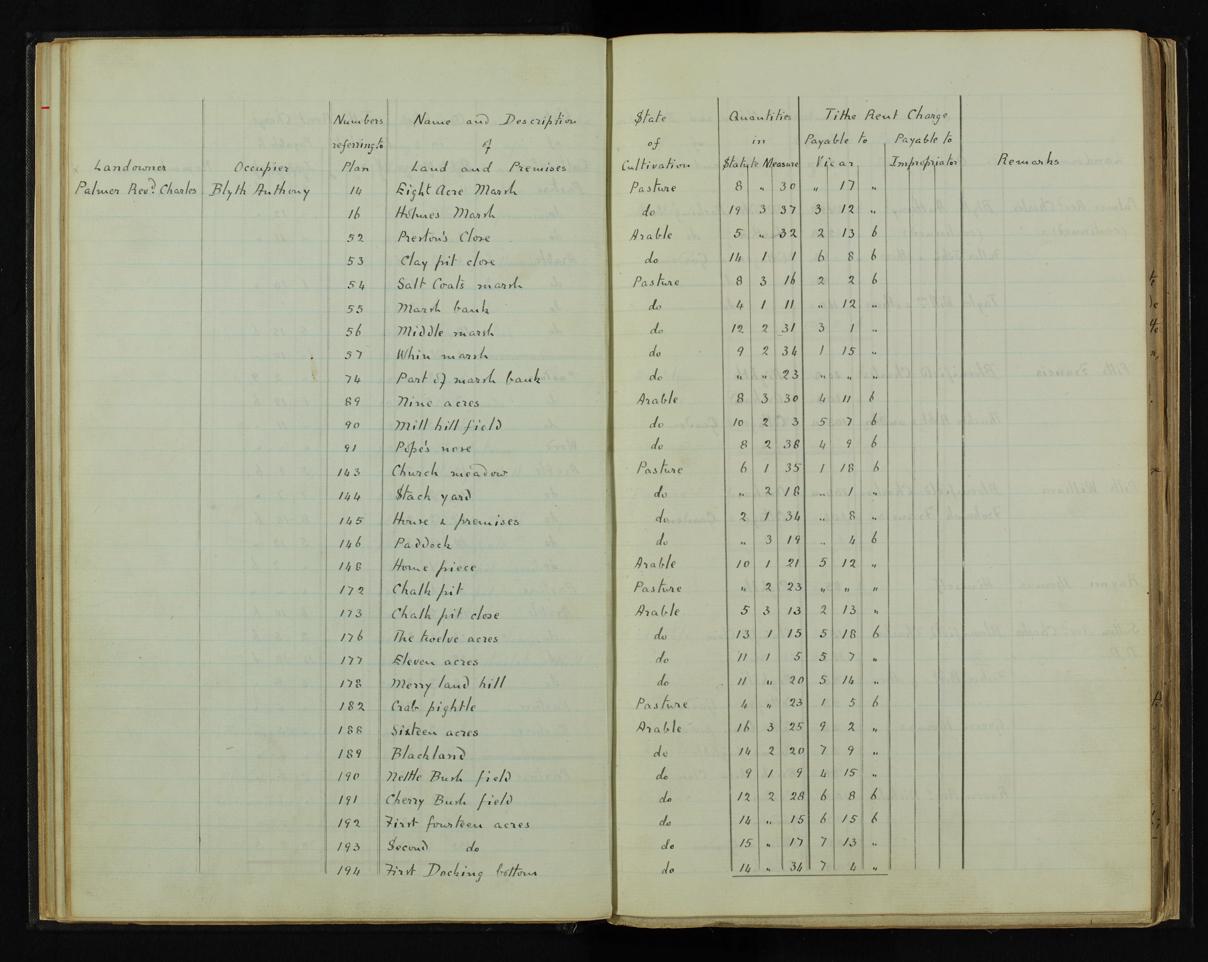 Numbers Name and Description State Quantities Tithe Rent Charge
referring to of of in Payable to Payable to
Landowner Occupier Plan Land and Premises Cultivation Statute Measure Vicar Impropriator Remarks
Palmer Revd. Charles Blyth Anthony 14 Eight Acre Marsh Pasture 8 " 30 " 17 "
16 Holmes Marsh do 19 3 37 3 12 "
52 Preston's Close Arable 5 " 32 2 13 6
53 Clay pit close do 14 1 1 6 8 6
54 Salt Coats marsh Pasture 8 3 16 2 2 6
55 Marsh bank do 4 1 11 " 12 "
56 Middle marsh do 12 2 31 3 1 "
57 Whin marsh do 9 2 34 1 15 "
74 Part of marsh bank do " " 23 " " "
89 Nine acres Arable 8 3 30 4 11 6
90 Mill hill field do 10 2 3 5 7 6
91 Pope's nose do 8 2 38 4 9 6
143 Church meadow Pasture 6 1 35 1 18 6
144 Stack yard do " 2 18 " 1 "
145 House & premises do 2 1 34 " 8 "
146 Paddock do " 3 19 " 4 6
148 Home piece Arable 10 1 21 5 12 "
172 Chalk pit Pasture " 2 23 " " "
173 Chalk pit close Arable 5 3 13 2 13 "
176 The twelve acres do 13 1 15 5 18 6
177 Eleven acres do 11 1 5 5 7 "
178 Merry land hill do 11 " 20 5 14 "
182 Crab pightle Pasture 4 " 23 1 5 6
188 Sixteen acres Arable 16 3 25 9 2 "
189 Blackland do 14 2 20 7 9 "
190 Nettle Bush field do 9 1 9 4 15 "
191 Cherry Bush field do 12 2 28 6 8 6
192 First fourteen acres do 14 " 15 6 15 6
193 Second do do 15 " 17 7 13 "
194 First Docking bottom do 14 " 34 7 4 "